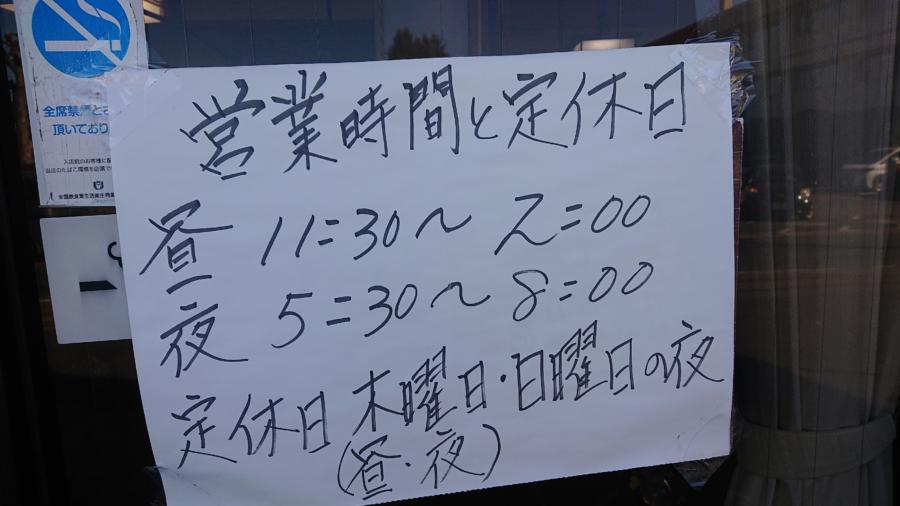 全席禁煙とさ
頂いており
入店前のお客様に
営業時間と定休日
昼 11:30〜2:00
夜 5:30〜8:00
定休日 木曜日・日曜日の夜
(昼・夜)